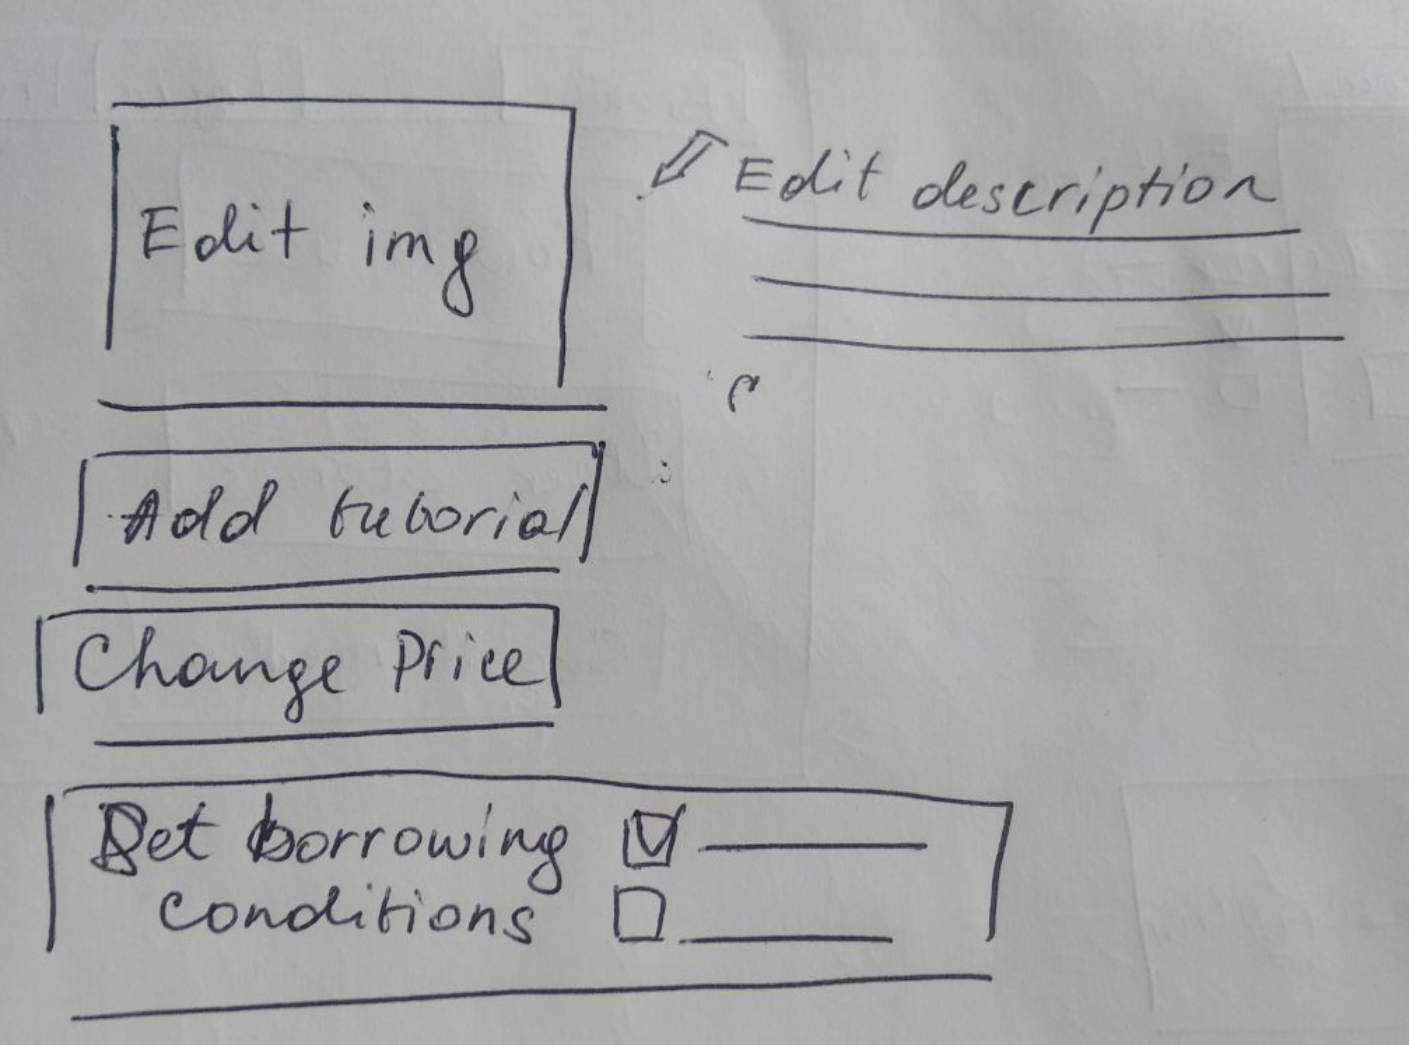 Edit img
Edit description
Add tutorial
Change Price
Set borrowing
conditions